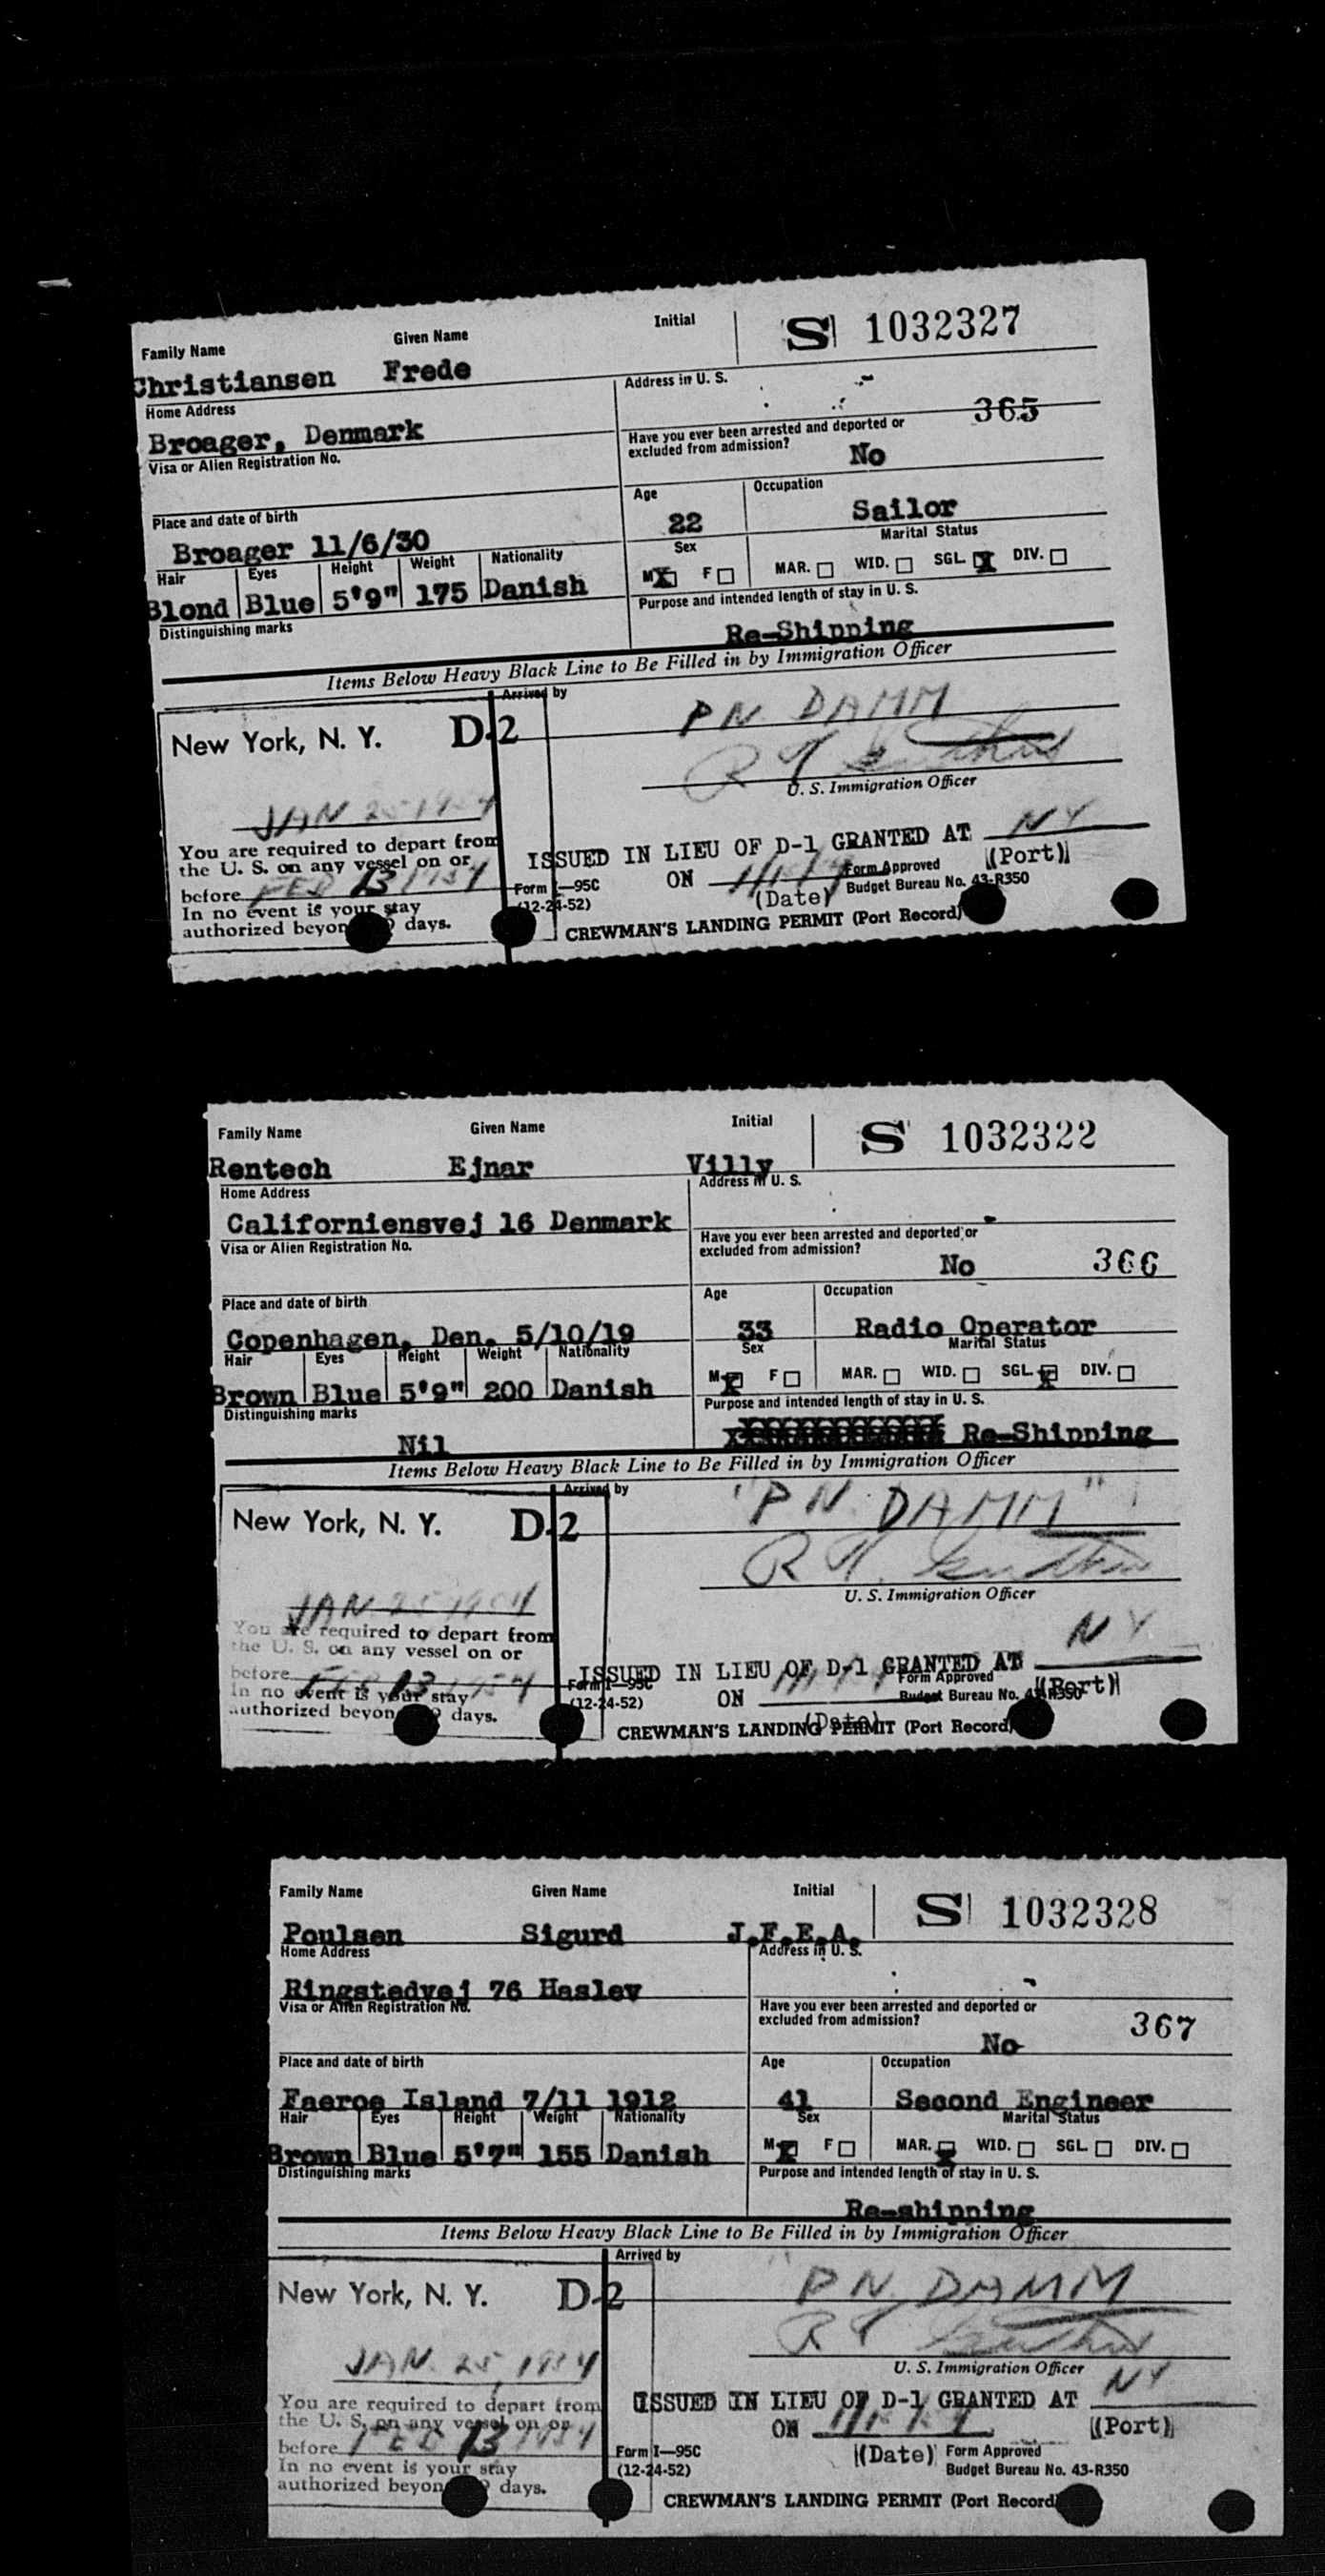 Family Name Given Name Initial S 1032327
Christiansen Frede
Home Address Address in U. S.
Broager, Denmark 365
Visa or Alien Registration No. Have you ever been arrested and deported or
excluded from admission? No
Place and date of birth Age Occupation
Broager 11/6/30 22 Sailor
Hair Eyes Height Weight Nationality Sex Marital Status
Blond Blue 5'9" 175 Danish M F MAR. WID. SGL. X DIV.
Distinguishing marks Purpose and intended length of stay in U. S.
Re-Shipping
Items Below Heavy Black Line to Be Filled in by Immigration Officer
Arrived by
New York, N. Y. D-2 PN DAMM
U. S. Immigration Officer
JAN 25 1954
You are required to depart from
the U. S. on any vessel on or
before FEB 13 1954
In no event is your stay
authorized beyon days.
ISSUED IN LIEU OF D-1 GRANTED AT NY
(Port)
ON
(Date)
Form I—95C
(12-24-52)
Form Approved
Budget Bureau No. 43-R350
CREWMAN'S LANDING PERMIT (Port Record)
Family Name Given Name Initial S 1032322
Rentech Ejnar Villy
Home Address Address in U. S.
Californiensvej 16 Denmark
Visa or Alien Registration No. Have you ever been arrested and deported or
excluded from admission? No 366
Place and date of birth Age Occupation
Copenhagen, Den. 5/10/19 33 Radio Operator
Hair Eyes Height Weight Nationality Sex Marital Status
Brown Blue 5'9" 200 Danish M F MAR. WID. SGL. DIV.
Distinguishing marks Purpose and intended length of stay in U. S.
Nil Re-Shipping
Items Below Heavy Black Line to Be Filled in by Immigration Officer
Arrived by
New York, N. Y. D-2 "PN. DAMM"
U. S. Immigration Officer
JAN 25 1954
You are required to depart from
the U. S. on any vessel on or
before FEB 13 1954
In no event is your stay
authorized beyon days.
ISSUED IN LIEU OF D-1 GRANTED AT NY
(Port)
ON
(Date)
Form I—95C
(12-24-52)
Form Approved
Budget Bureau No. 43-R350
CREWMAN'S LANDING PERMIT (Port Record)
Family Name Given Name Initial S 1032328
Poulsen Sigurd J.F.E.A.
Home Address Address in U. S.
Ringstedvej 76 Haslev
Visa or Alien Registration No. Have you ever been arrested and deported or
excluded from admission? No 367
Place and date of birth Age Occupation
Faeroe Island 7/11 1912 41 Second Engineer
Hair Eyes Height Weight Nationality Sex Marital Status
Brown Blue 5'7" 155 Danish M F MAR. WID. SGL. DIV.
Distinguishing marks Purpose and intended length of stay in U. S.
Re-shipping
Items Below Heavy Black Line to Be Filled in by Immigration Officer
Arrived by
New York, N. Y. D-2 "PN. DAMM
U. S. Immigration Officer
JAN. 25 1954
You are required to depart from
the U. S. on any vessel on or
before FEB 13 1954
In no event is your stay
authorized beyon days.
ISSUED IN LIEU OF D-1 GRANTED AT NY
(Port)
ON
(Date)
Form I—95C
(12-24-52)
Form Approved
Budget Bureau No. 43-R350
CREWMAN'S LANDING PERMIT (Port Record)